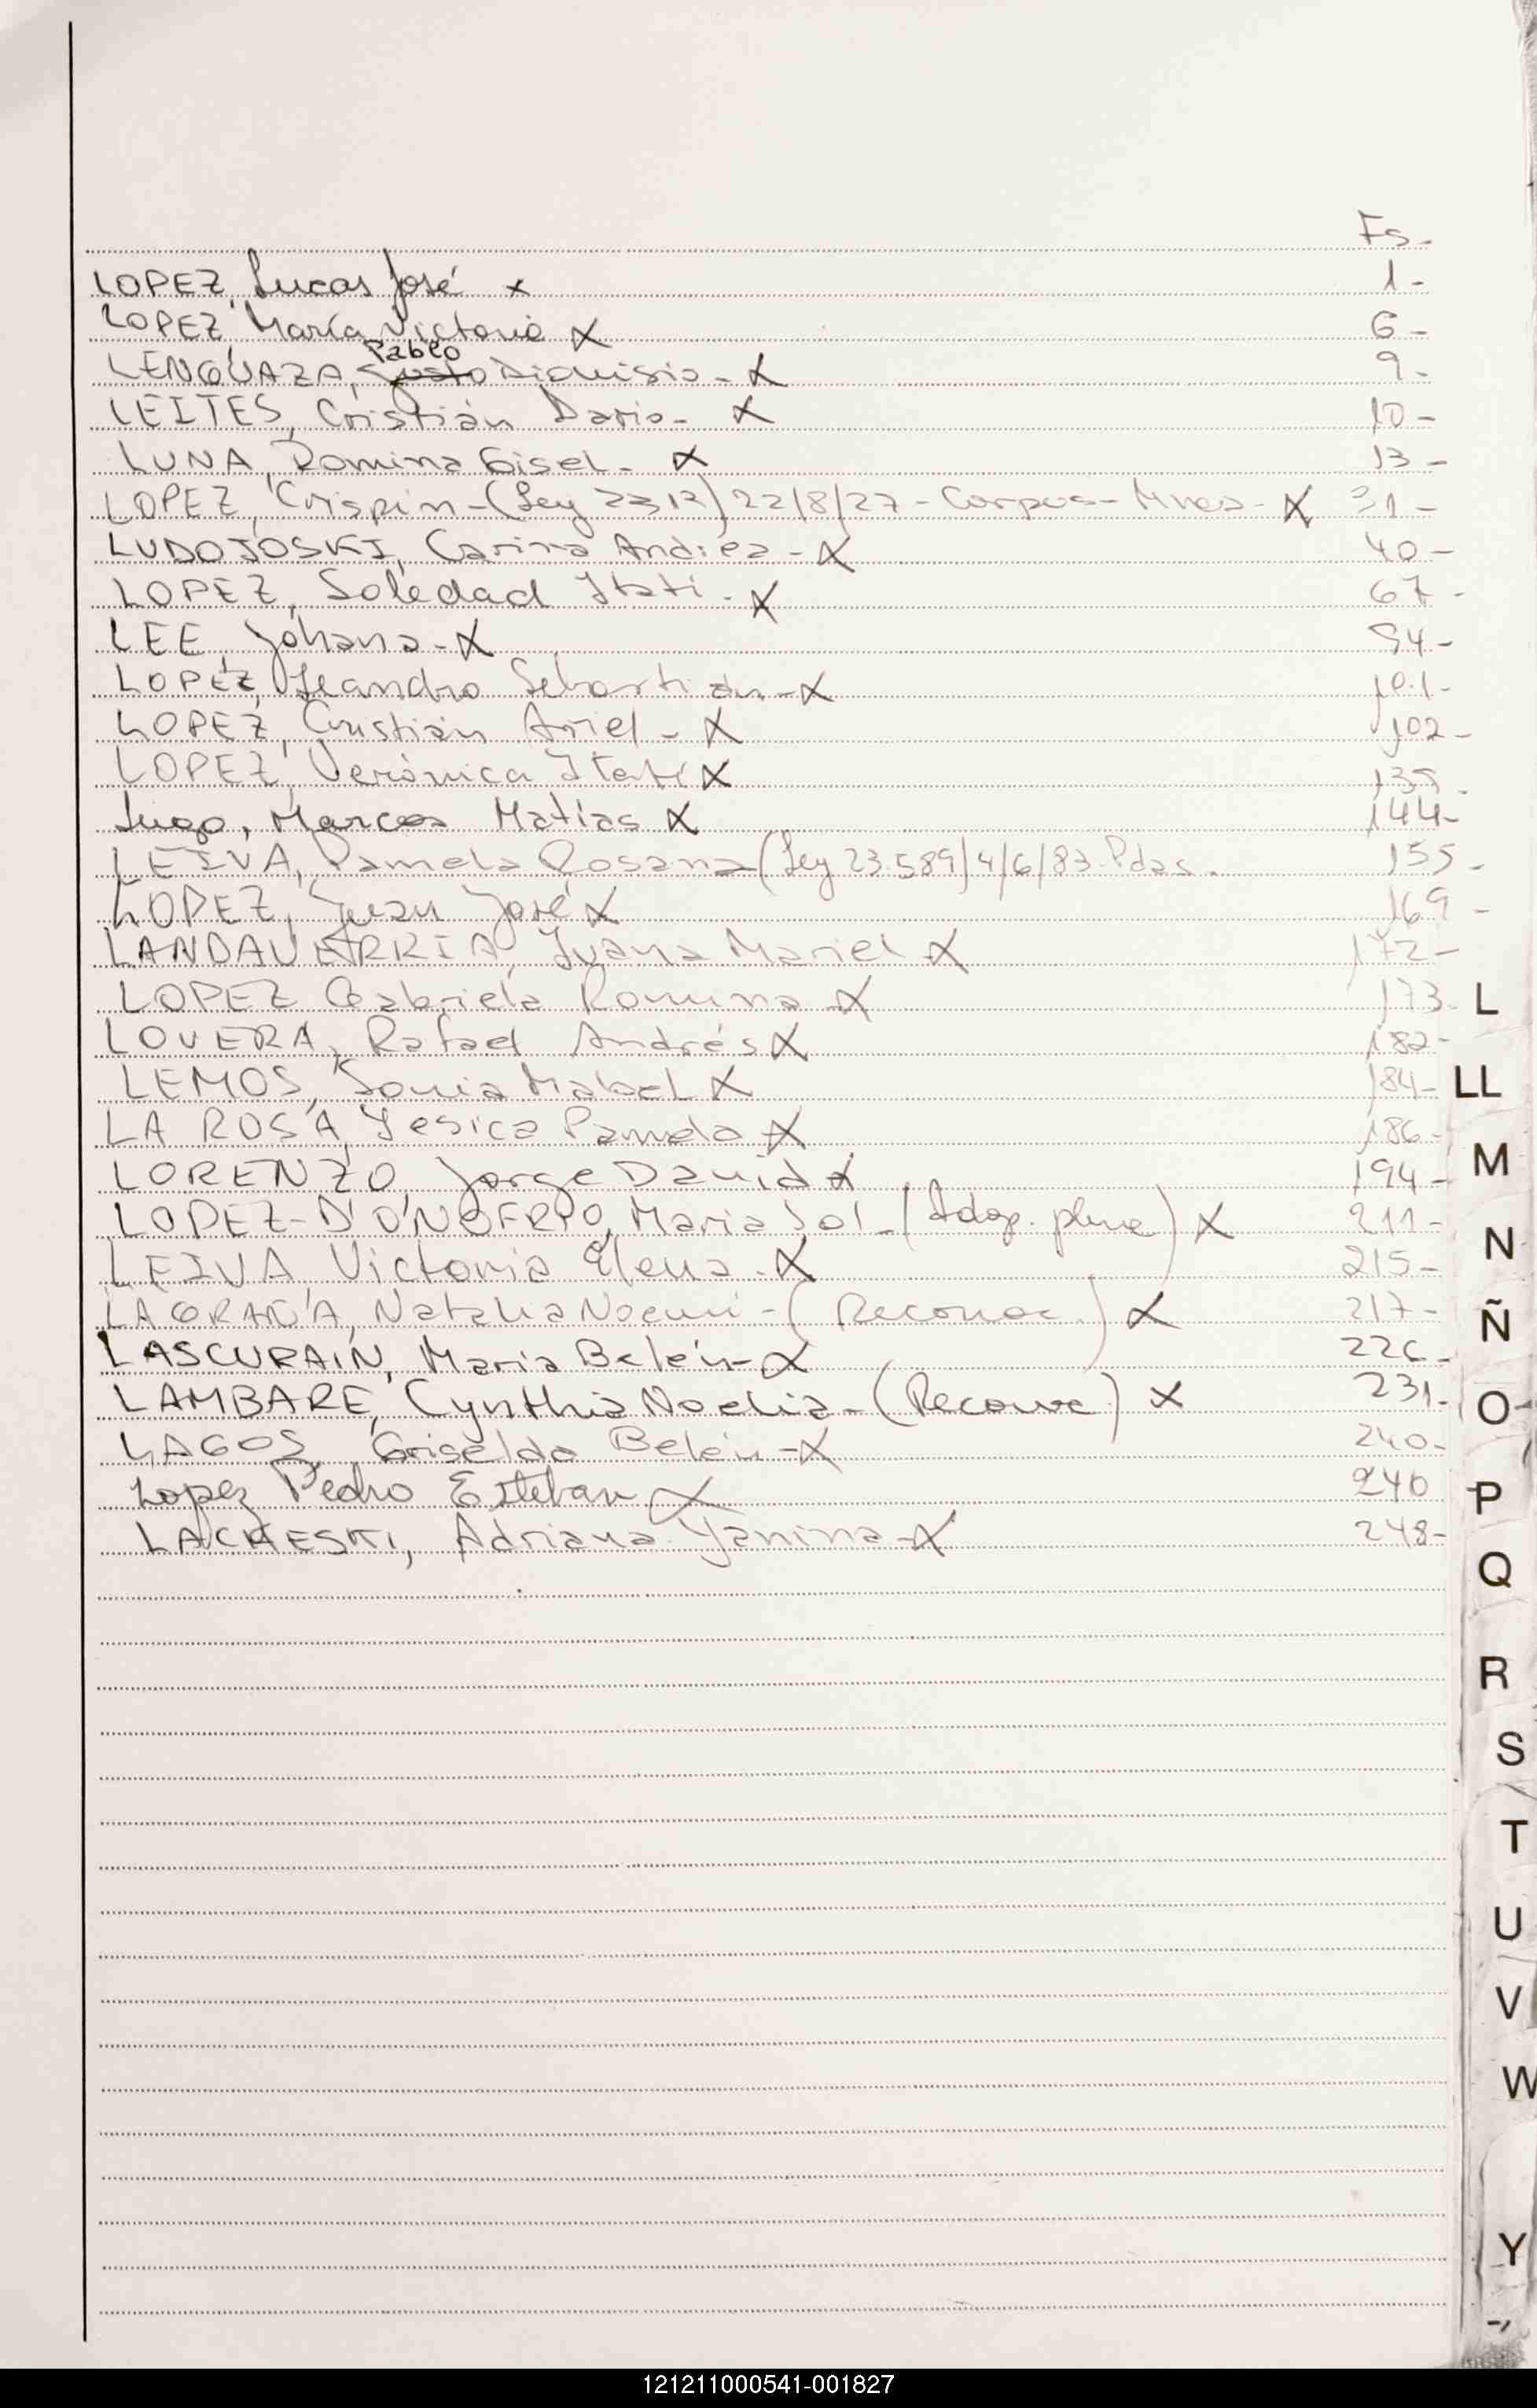 Fs-
LOPEZ, Lucas José x 1-
LOPEZ, María Victoria X 6-
Pablo
LENGUAZA, Justo Dionisio- X 9-
LEITES, Cristián Dario- X 10-
LUNA, Romina Gisel- X 13-
LOPEZ, Crispin-(Ley ) 22/8/27-Corpus-Mnes- X 31-
LUDOJOSKI, Carina Andrea-X 40-
LOPEZ, Soledad Itati-X 67-
LEE, Johana-X 94-
LOPEZ, Leandro Sebastián-X 101-
LOPEZ, Cristián Ariel-X 102-
LOPEZ, Verónica Itatí X 135-
Lugo, Marcos Matías X 144-
LEIVA, Pamela Rosana (Ley 23.589/4/6/83-Pdas. 155-
LOPEZ, Juan José X 169-
Juana Mariel X 172-
LOPEZ Gabriela Romina X 173- L
LOVERA, Rafael Andrés X 182-
LEMOS, Sonia Mabel X 184- LL
LA ROSA, Yesica Pamela X 186-
LORENZO, Jorge David X 194- M
LOPEZ-D'ONOFRIO, Maria Sol-(Adop. plena) X 211-
N
LEIVA Victoria Elena-X 215-
Natalia Noemi-(Reconoc.) X 217- Ñ
LASCURAIN, Maria Belén-X 226-
LAMBARE, Cynthia Noelia-(Reconoc) X 231- O
LAGOS, Griselda Belén-X 240-
Lopez Pedro Esteban X 240 P
LACHESKI, Adriana Yanina-X 248-
Q
R
S
T
U
V
W
Y
121211000541-001827